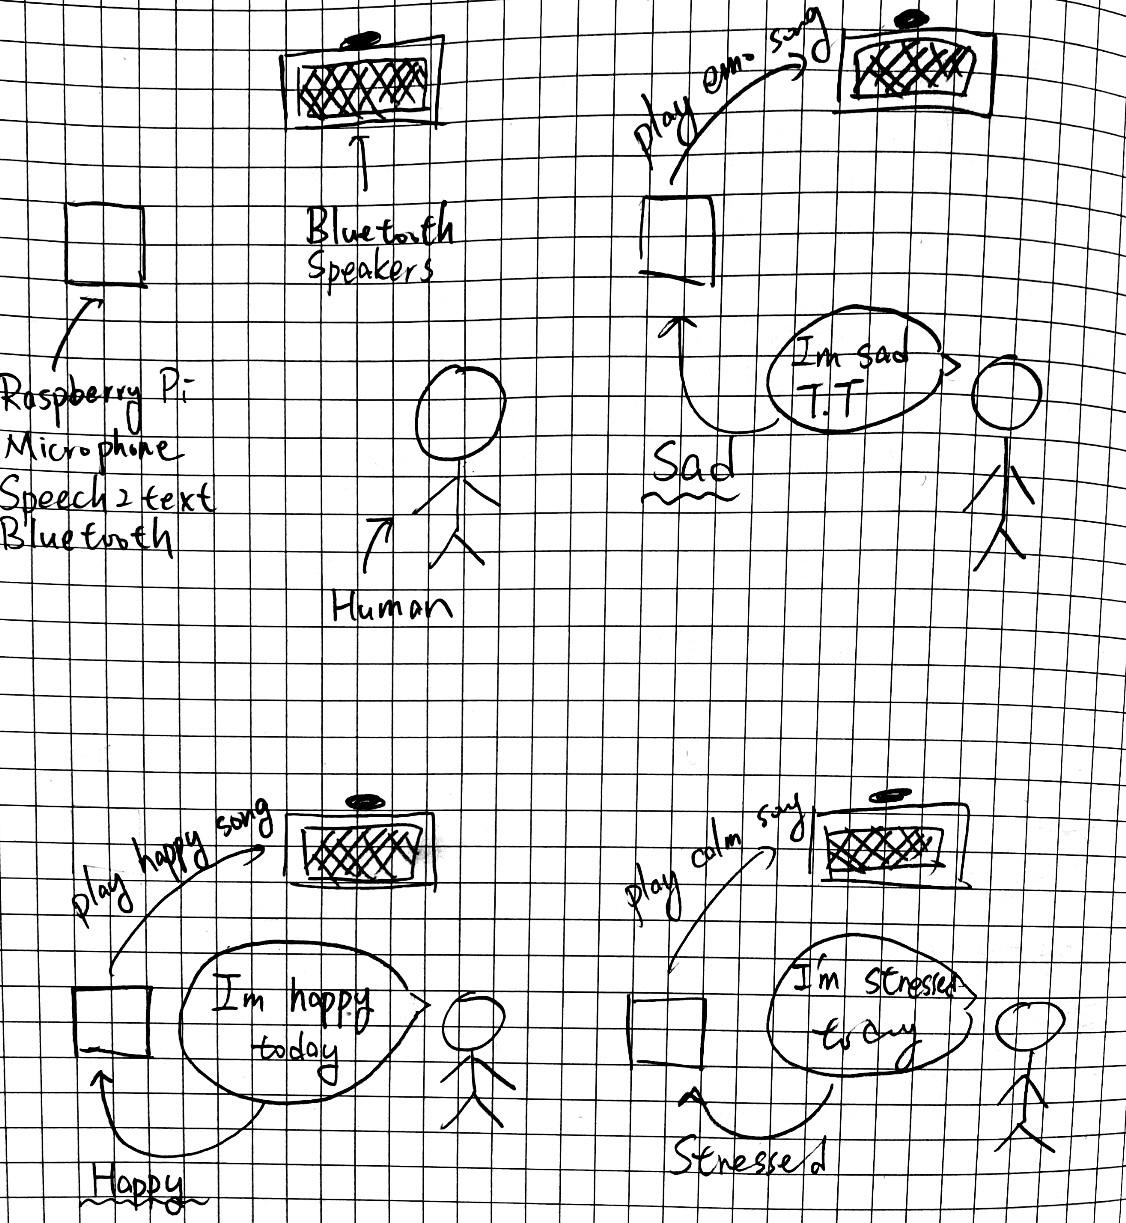 Bluetooth
Speakers
Raspberry Pi
Microphone
Speech 2 text
Bluetooth
Human
play emo song
Im sad
T.T
Sad
play happy song
I'm happy
today
Happy
play calm song
I'm stressed
today
Stressed